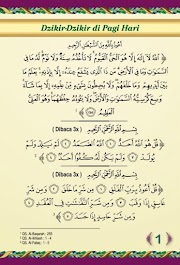 Dzikir-Dzikir di Pagi Hari
أَعُوذُ بِاللَّهِ مِنَ الشَّيْطَانِ الرَّجِيمِ
اللَّهُ لَا إِلَهَ إِلَّا هُوَ الْحَيُّ الْقَيُّومُ لَا تَأْخُذُهُ سِنَةٌ وَلَا نَوْمٌ لَهُ مَا فِي
السَّمَاوَاتِ وَمَا فِي الْأَرْضِ مَنْ ذَا الَّذِي يَشْفَعُ عِنْدَهُ إِلَّا بِإِذْنِهِ يَعْلَمُ مَا
بَيْنَ أَيْدِيهِمْ وَمَا خَلْفَهُمْ وَلَا يُحِيطُونَ بِشَيْءٍ مِنْ عِلْمِهِ إِلَّا بِمَا شَاءَ
وَسِعَ كُرْسِيُّهُ السَّمَاوَاتِ وَالْأَرْضَ وَلَا يَئُودُهُ حِفْظُهُمَا وَهُوَ الْعَلِيُّ
الْعَظِيمُ
( Dibaca 3x )
قُلْ هُوَ اللَّهُ أَحَدٌ اللَّهُ الصَّمَدُ لَمْ يَلِدْ وَلَمْ
يُولَدْ وَلَمْ يَكُنْ لَهُ كُفُوًا أَحَدٌ
( Dibaca 3x )
قُلْ أَعُوذُ بِرَبِّ الْفَلَقِ مِنْ شَرِّ مَا خَلَقَ وَمِنْ شَرِّ
وَمِنْ شَرِّ حَاسِدٍ إِذَا حَسَدَ
QS. Al-Baqarah : 255
QS. Al-Ikhlash : 1 - 4
QS. Al-Falaq : 1 - 5
1